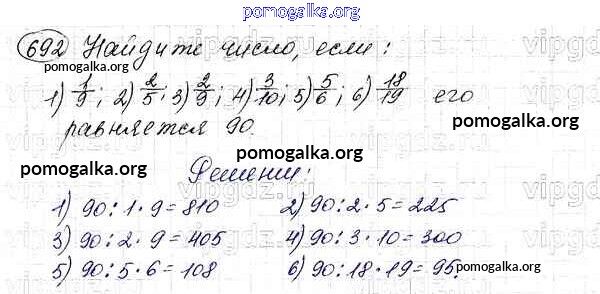 pomogalka.org
692 Найдите число, если:
pomogalka.org
1) 1/9; 2) 2/5; 3) 2/9; 4) 3/10; 5) 5/6; 6) 18/19 его
pomogalka.org
равняется 90.
pomogalka.org
pomogalka.org
Решение:
1) 90:1·9=810 2) 90:2·5=225
3) 90:2·9=405 4) 90:3·10=300
5) 90:5·6=108 6) 90:18·19=95
pomogalka.org